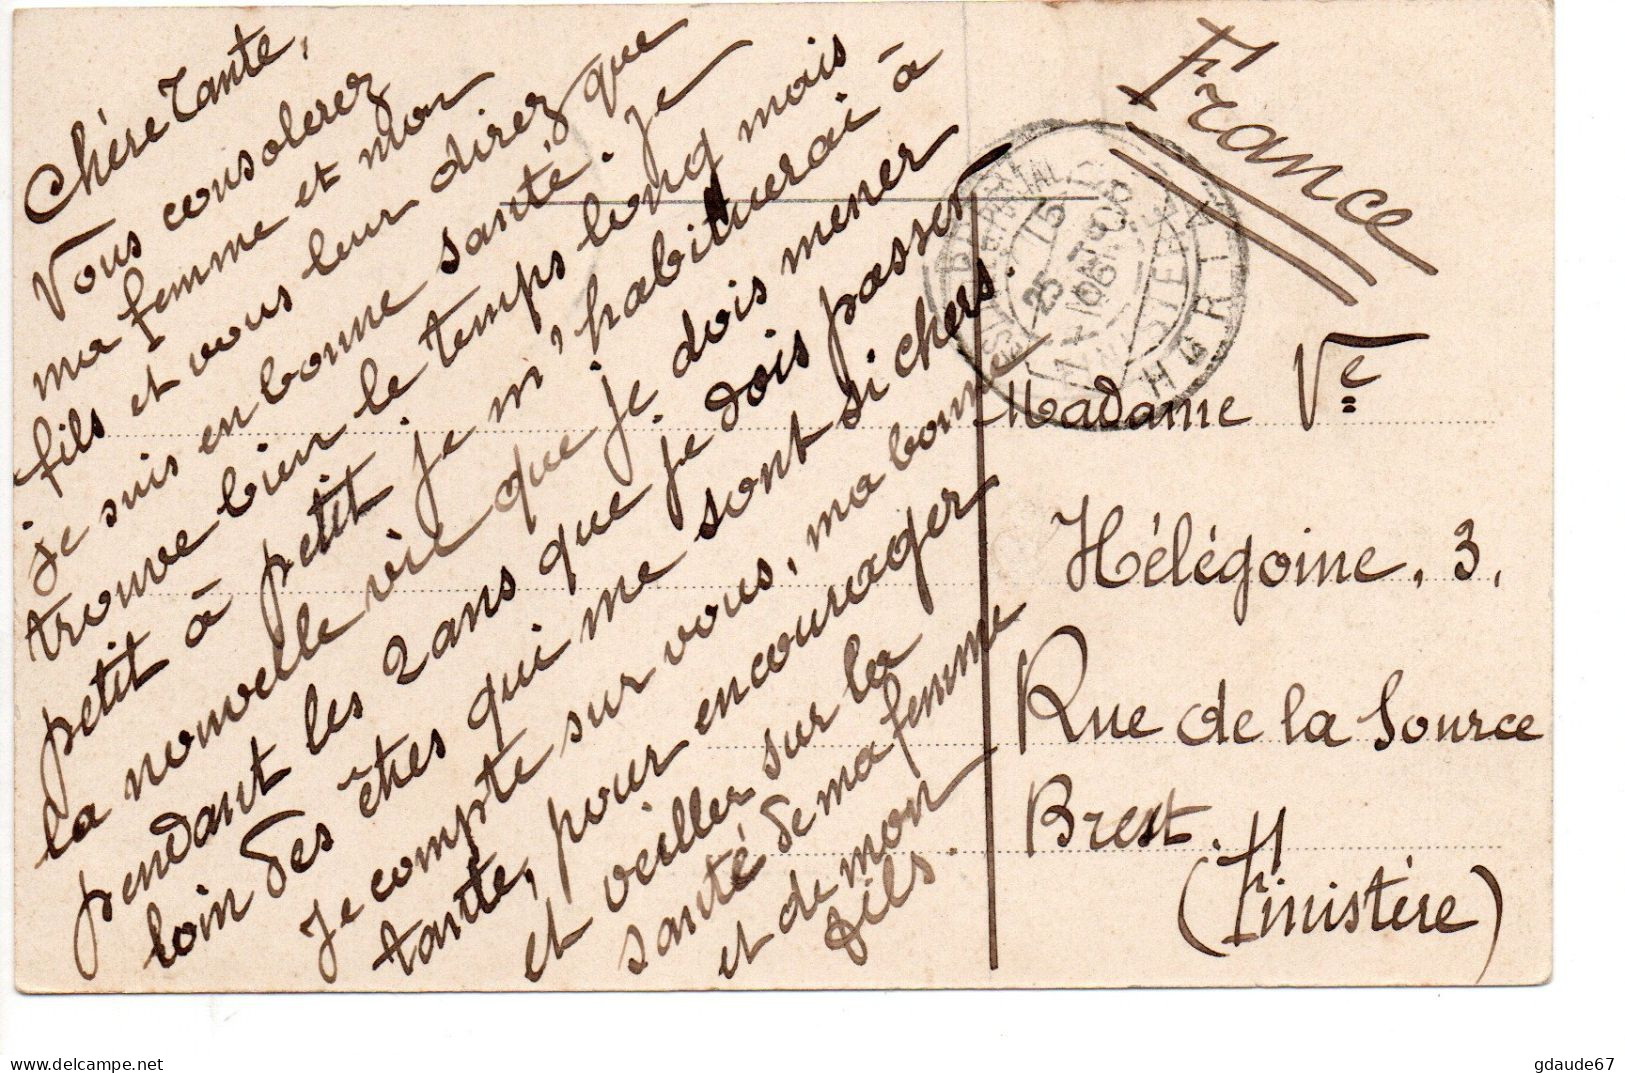 Chère Tante,
Vous consolerez
ma femme et mon
fils et vous leur direz que
je suis en bonne santé. Je
trouve bien le temps long mais
petit à petit je m'habituerai à
la nouvelle vie que je dois mener
pendant les 2 ans que je dois passer
loin des êtres qui me sont si chers.
Je compte sur vous, ma bonne
tante, pour encourager
et veiller sur la
santé de ma femme
et de mon
fils.
France
75
25
06
Madame Vᵉ
Hélégoine, 3,
Rue de la Source
Brest.
(Finistère)
delcampe.net
gdaude67